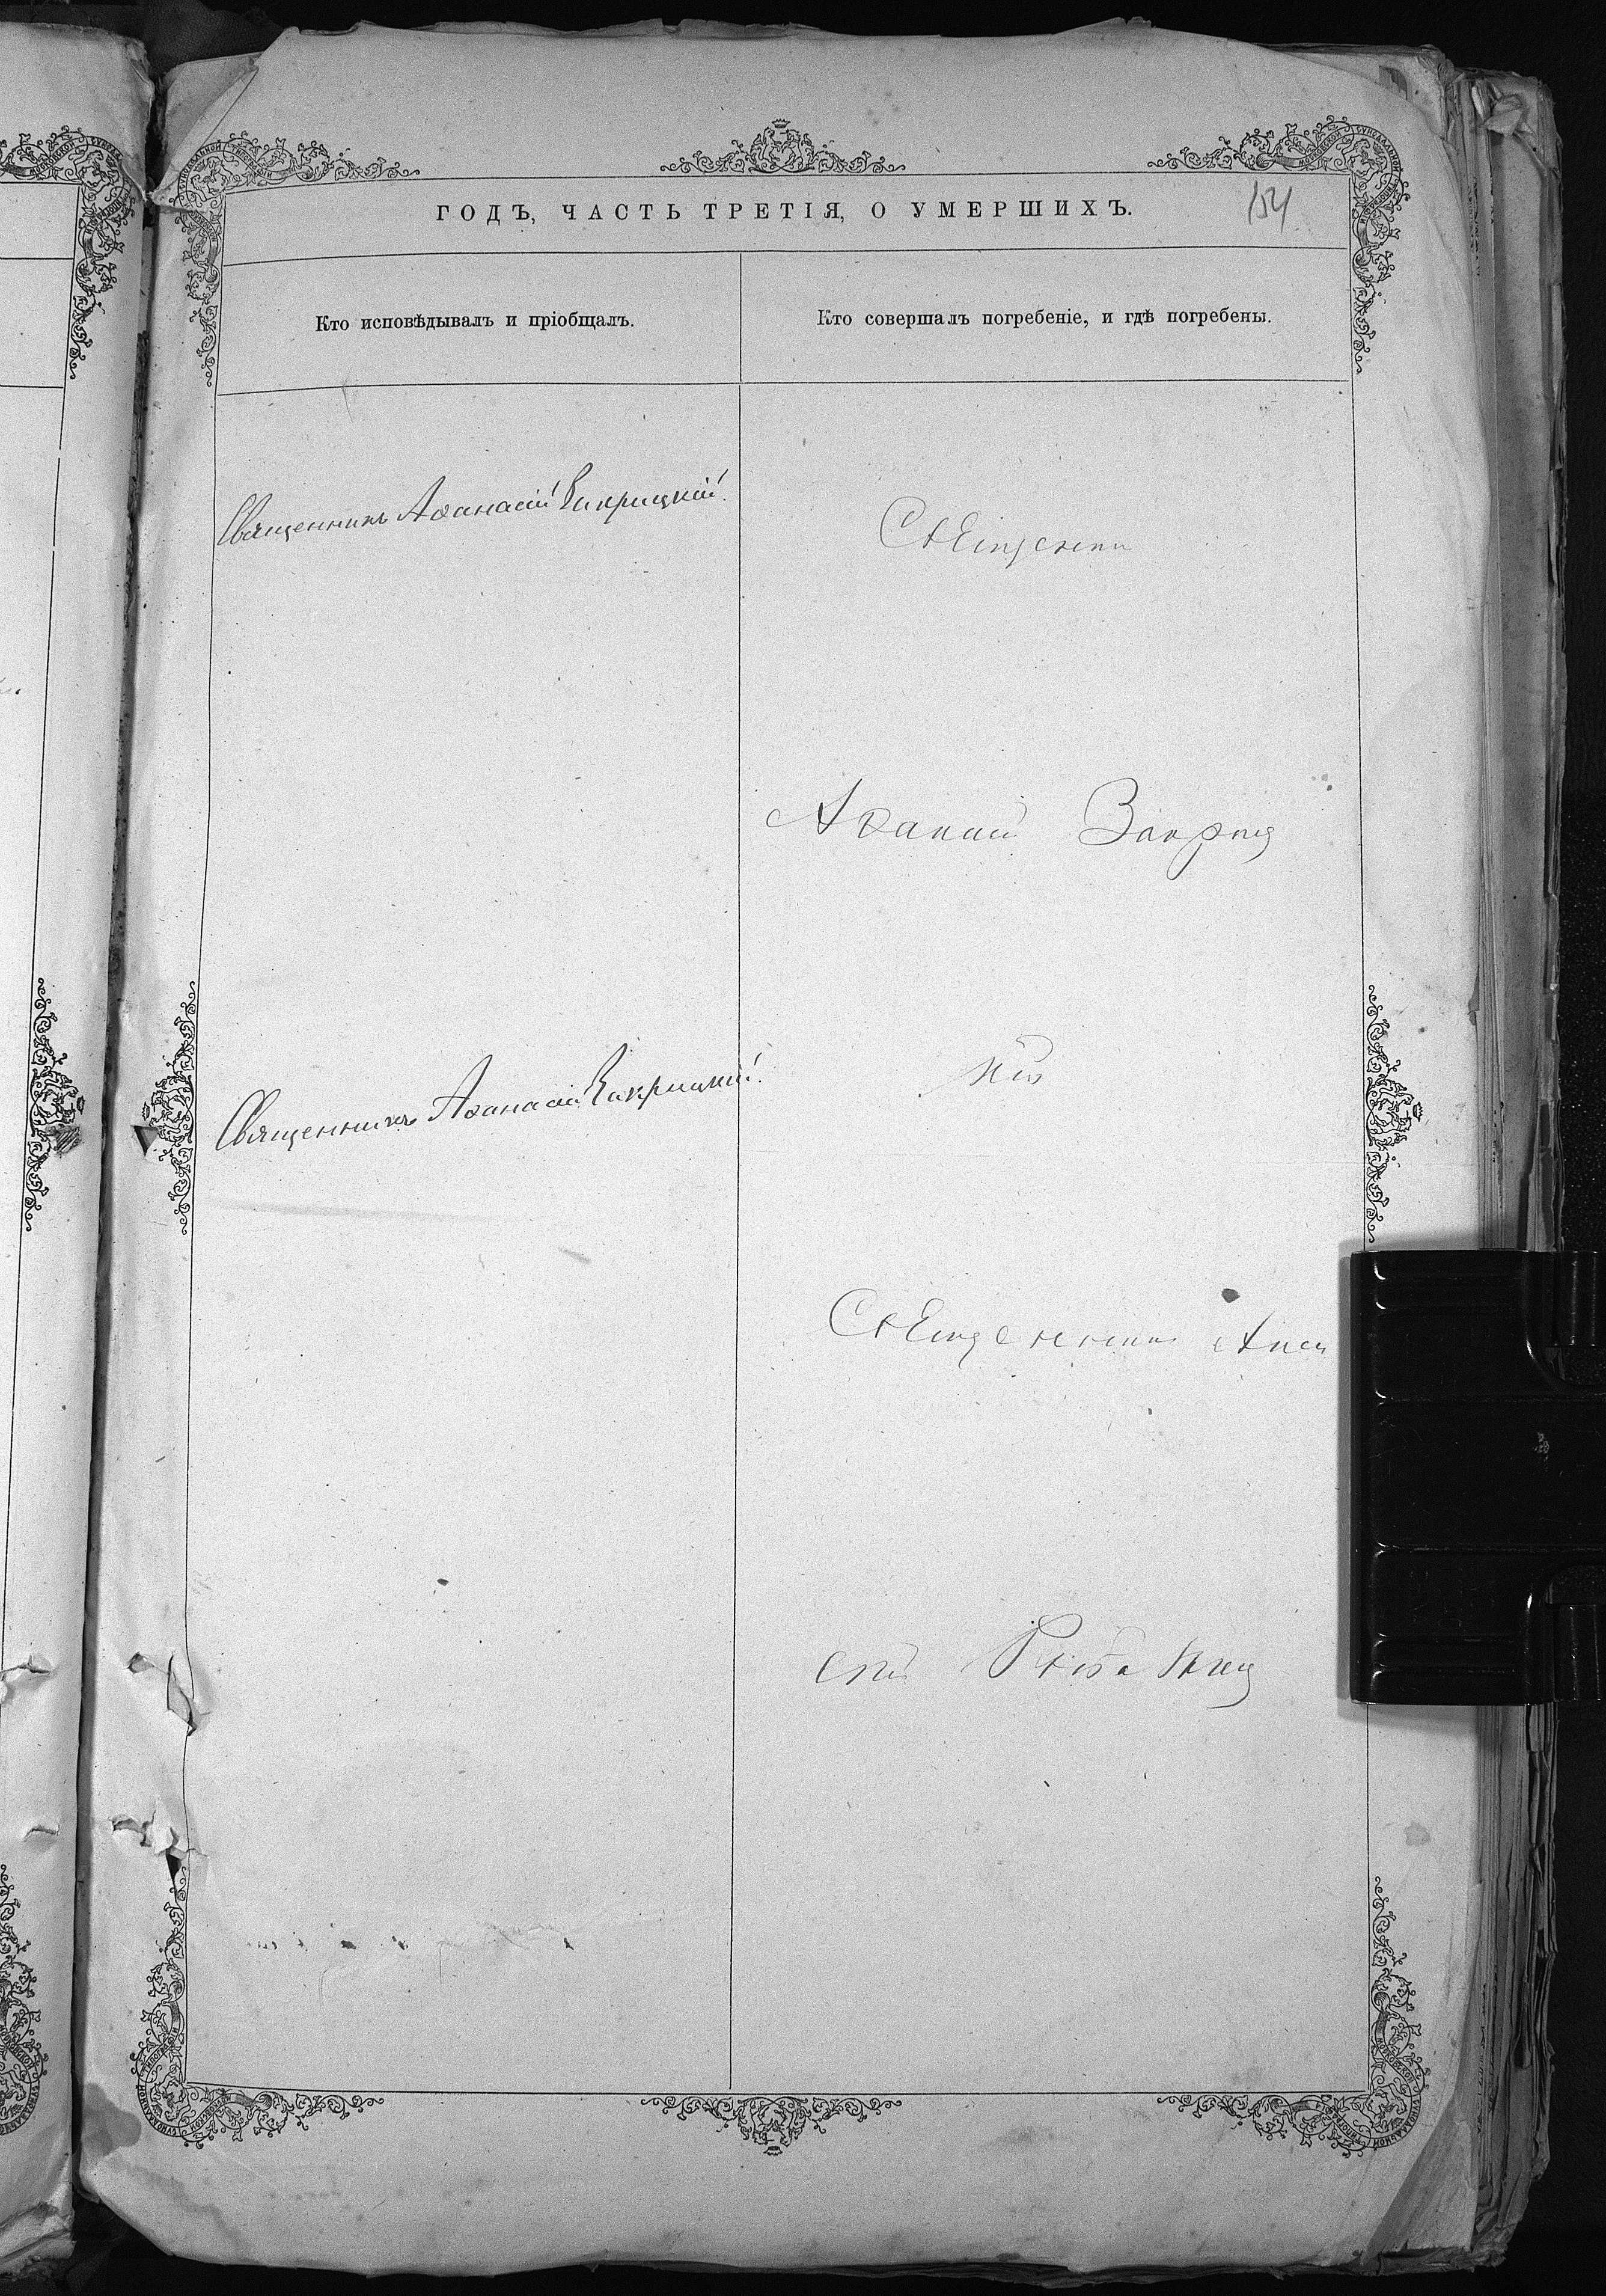 ГОДЪ, ЧАСТЬ ТРЕТІЯ, О УМЕРШИХЪ.
154
Кто исповѣдывалъ и пріобщалъ.
Кто совершалъ погребеніе, и гдѣ погребены.
Священникъ Аѳанасій Закрицкій.
Священникъ Аѳанасій Закрицкій.
Свещенни
Аѳанаій Закриц
кій
Свещенник